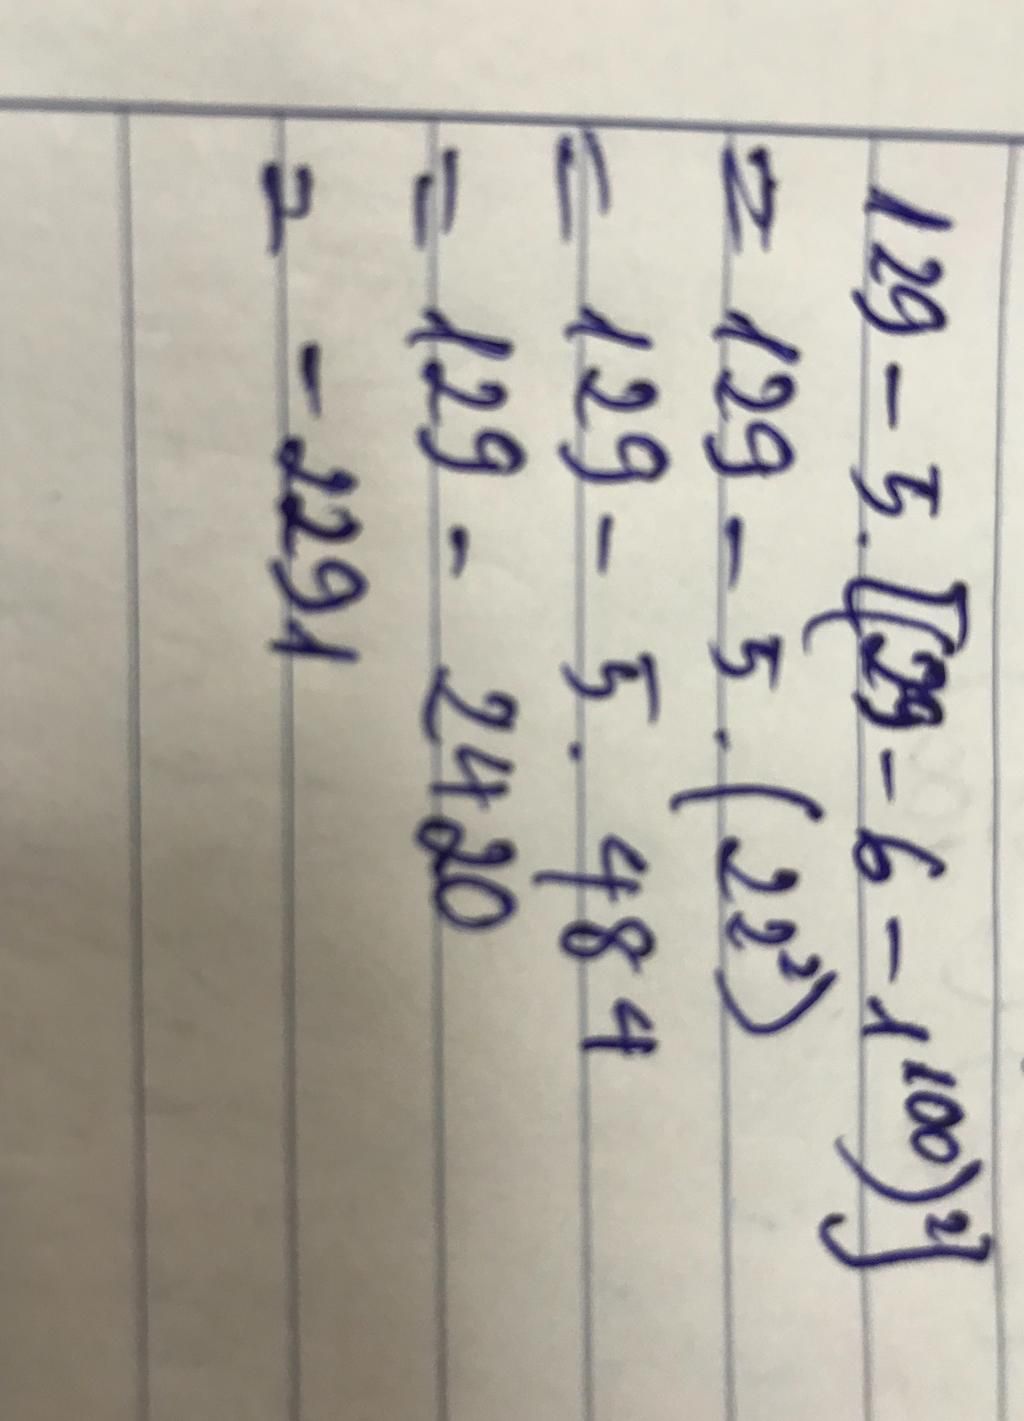 129 - 5.[(29 - 6 - 1¹⁰⁰)²]
= 129 - 5.(22²)
= 129 - 5.484
= 129 - 2420
= -2291